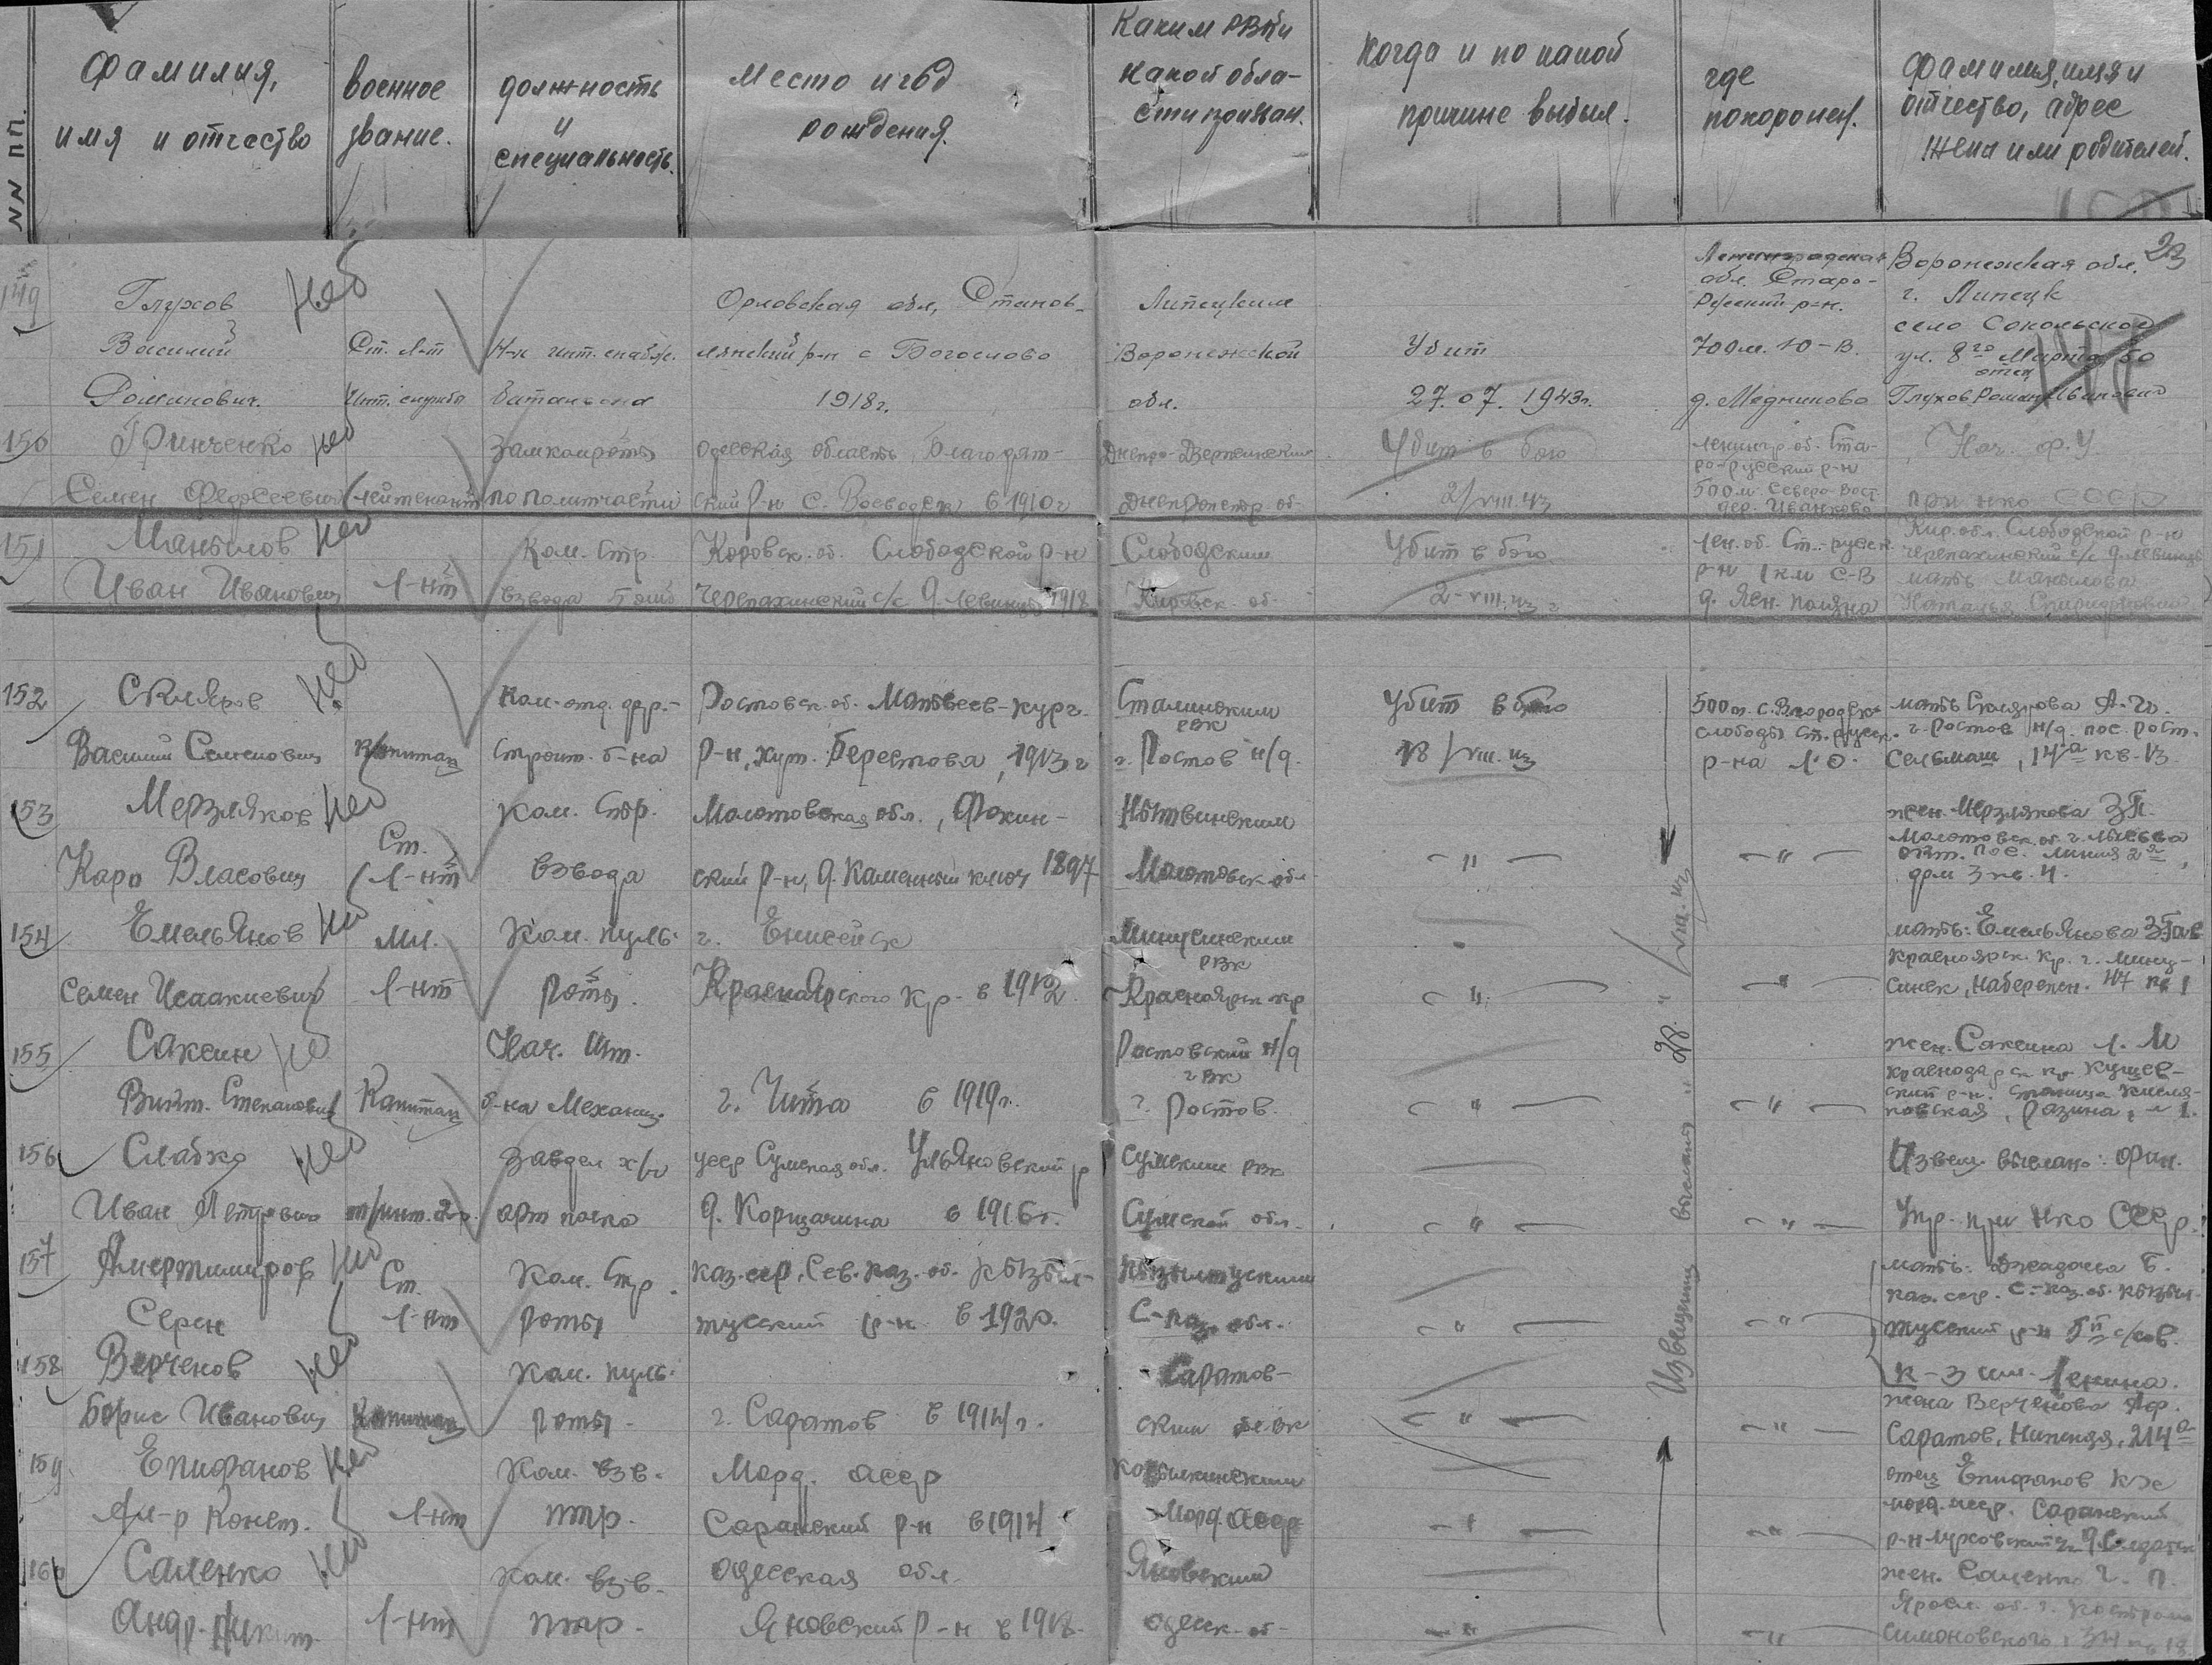 №№ п.п.
Фамилия,
имя и отчество
военное
звание.
должность
и
специальность.
Место и год
рождения.
Каким РВК и
какой обла-
сти призван.
Когда и по какой
причине выбыл.
где
похоронен.
Фамилия, имя и
отчество, адрес
жены или родителей.
23
149
Глухов
Василий
Романович.
Ст. л-т
Инт. службы
Н-к инт. снабж.
батальона
Орловская обл, Станов-
лянский р-н с Богослово
1918 г.
Липецким
Воронежской
обл.
Убит
27.07.1943 г.
Ленинградская
обл. Старо-
Русский р-н.
700 м. Ю-В.
д. Медниково
Воронежская обл.
г. Липецк
село Сокольское
ул. 8го Марта, 50
отец
Глухов Роман Иванович
150
Гринченко
Семен Федосеевич
лейтенант
Замкомроты
по политчасти
Одесская область, Благодат-
ский р-н с. Воеводск в 1910 г
Днепро-Дзержинским
Днепропетр. об-
Убит в бою
2/VIII.43
Ленингр. об. Ста-
ро-русский р-н
500 м Северо Вост
дер. Иванково
Нач. Ф.У.
при НКО СССР
151
Мантилов
Иван Иванович
л-нт
Ком. Стр.
взвода
Кировск. об. Слободской р-н
Черепахинский с/с д. Левинцы 1918
Слободским
Кировск. об-
Убит в бою
2-VIII.43 г
Лен. об. Ст.-русск.
р-н 1 км С-В
д. Ясн. поляна
Кир. обл. Слободской р-н
Черепахинский с/с д. Левинцы
мать Мантилова
Наталья
152
Скляров
Василий Семенович
Капитан
Ком. отд. дор.-
строит. б-на
Ростовск. об. Матвеев-кург.
р-н, хут. Берестова, 1913 г
Сталинским
РВК
г. Ростов н/д.
Убит в бою
18/VIII.43
500 м. с.
слободы Ст. русск.
р-на Л.О.
мать Склярова А.
г. Ростов н/д. пос. рост.
Сельмаш, 14а кв. 13.
153
Мерзляков
Карп Власович
Ст.
л-нт
Ком. Стр.
взвода
Молотовская обл., Фокин-
ский р-н, д. Каменный ключ 1897
Нытвинским
Молотовск. обл
—"—
—"—
жен. Мерзлякова З.П.
Молотовск. об. г. Лысьва
линия 2я,
дом 3 кв. 4.
154
Емельянов
Семен Исаакиевич
Мл.
л-нт
Ком. пуль.
роты.
г. Енисейск
Красноярского кр. в 1912
Минусинским
РВК
Красноярск. кр
—"—
—"—
мать: Емельянова
Красноярск. кр. г. Мину-
синск, Набережн. 47 кв 1
155
Саксин
Викт. Степанович
Капитан
Нач. шт.
б-на Механиз.
г. Чита в 1919 г.
Ростовский н/д
ГВК
г. Ростов.
—"—
—"—
жен. Саксина Л. М
Краснодарск. кр. Кущев-
ский р-н. станица Кисля-
ковская, Разина, № 1.
156
Слабко
Иван Петрович
Завдел х/ч
арт полка
УССР Сумская обл. Ульяновский р
д. Корщачина в 1916 г.
Сумским РВК
Сумской обл.
—"—
—"—
Извещ. выслано: Фин.
Упр. при НКО СССР.
157
Амертимиров
Серен
Ст.
л-нт
Ком. Стр.
роты
Каз. ССР, Сев. каз. об. Кызыл-
туский р-н в 1920.
Кызылтуским
С-каз. обл.
—"—
—"—
мать: Джадаева Б.
Каз. сср. С.-каз. об. Кызыл-
туский р-н с/сов.
К-з им. Ленина.
158
Верченов
Борис Иванович
Капитан
Ком. пуль.
роты.
г. Саратов в 1914 г.
Саратов-
ским
—"—
—"—
жена Верченова
Саратов, 214а
159
Епифанов
Ал-р Конст.
л-нт
Ком. взв.
ПТР.
Морд. АССР
Саранский р-н в 1914
Ковылкинским
Морд. АССР
—"—
—"—
отец Епифанов К.
морд. АССР. Саранский
р-н
160
Саленко
Андр. Никит.
л-нт
Ком. взв.
ПТР.
Одесская обл.
Яновский р-н в 1918
Яновским
Одесск. об-
—"—
—"—
жен. Саленко
Яросл. об. г. Кострома
Симоновского,
Извещения высланы 28. VIII. 43